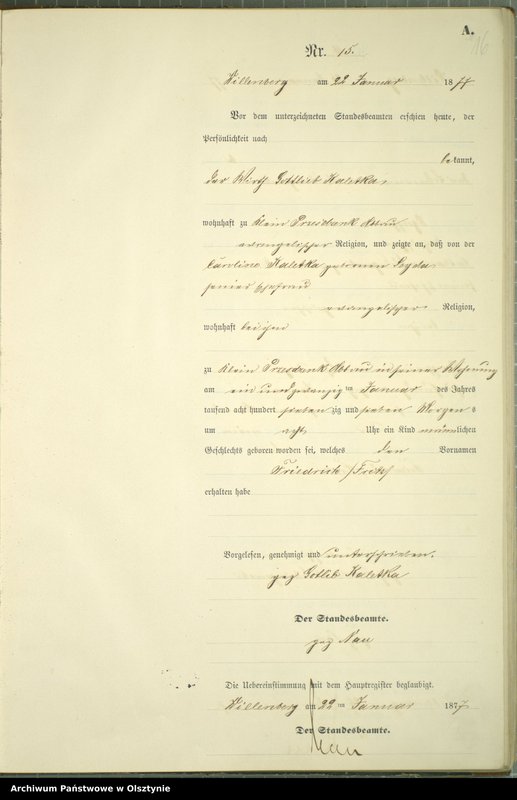 A.
16
Nr. 15.
Willenberg am 22 Januar 1877
Vor dem unterzeichneten Standesbeamten erschien heute, der
Persönlichkeit nach
bekannt,
der Wirth Gottlieb Kaletka,
wohnhaft zu Klein Przesdzienk Abbau
evangelischer Religion, und zeigte an, daß von der
Caroline Kaletka geborenen
seiner Ehefrau
evangelischer Religion,
wohnhaft bei ihm
zu Klein Przesdzienk Abbau in seiner Wohnung
am ein und zwanzig ten Januar des Jahres
tausend acht hundert sieben zig und sieben Morgens
um acht Uhr ein Kind männlichen
Geschlechts geboren worden sei, welches den Vornamen
Friedrich /Fritz/
erhalten habe
Vorgelesen, genehmigt und unterschrieben.
gez Gotlib Kaletka
Der Standesbeamte.
gez Nau
Die Uebereinstimmung mit dem Hauptregister beglaubigt.
Willenberg am 22 ten Januar 1877
Der Standesbeamte.
Nau
Archiwum Państwowe w Olsztynie